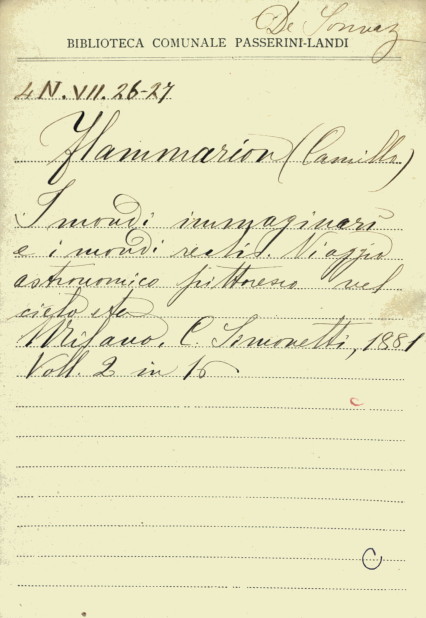 De
BIBLIOTECA COMUNALE PASSERINI-LANDI
4 N. VII. 26-27
Flammarion (Camillo)
I mondi immaginari
e i mondi reali. Viaggio
astronomico pittoresco nel
cielo etc
Milano, C. Simonetti, 1881
Voll. 2 in 16
C